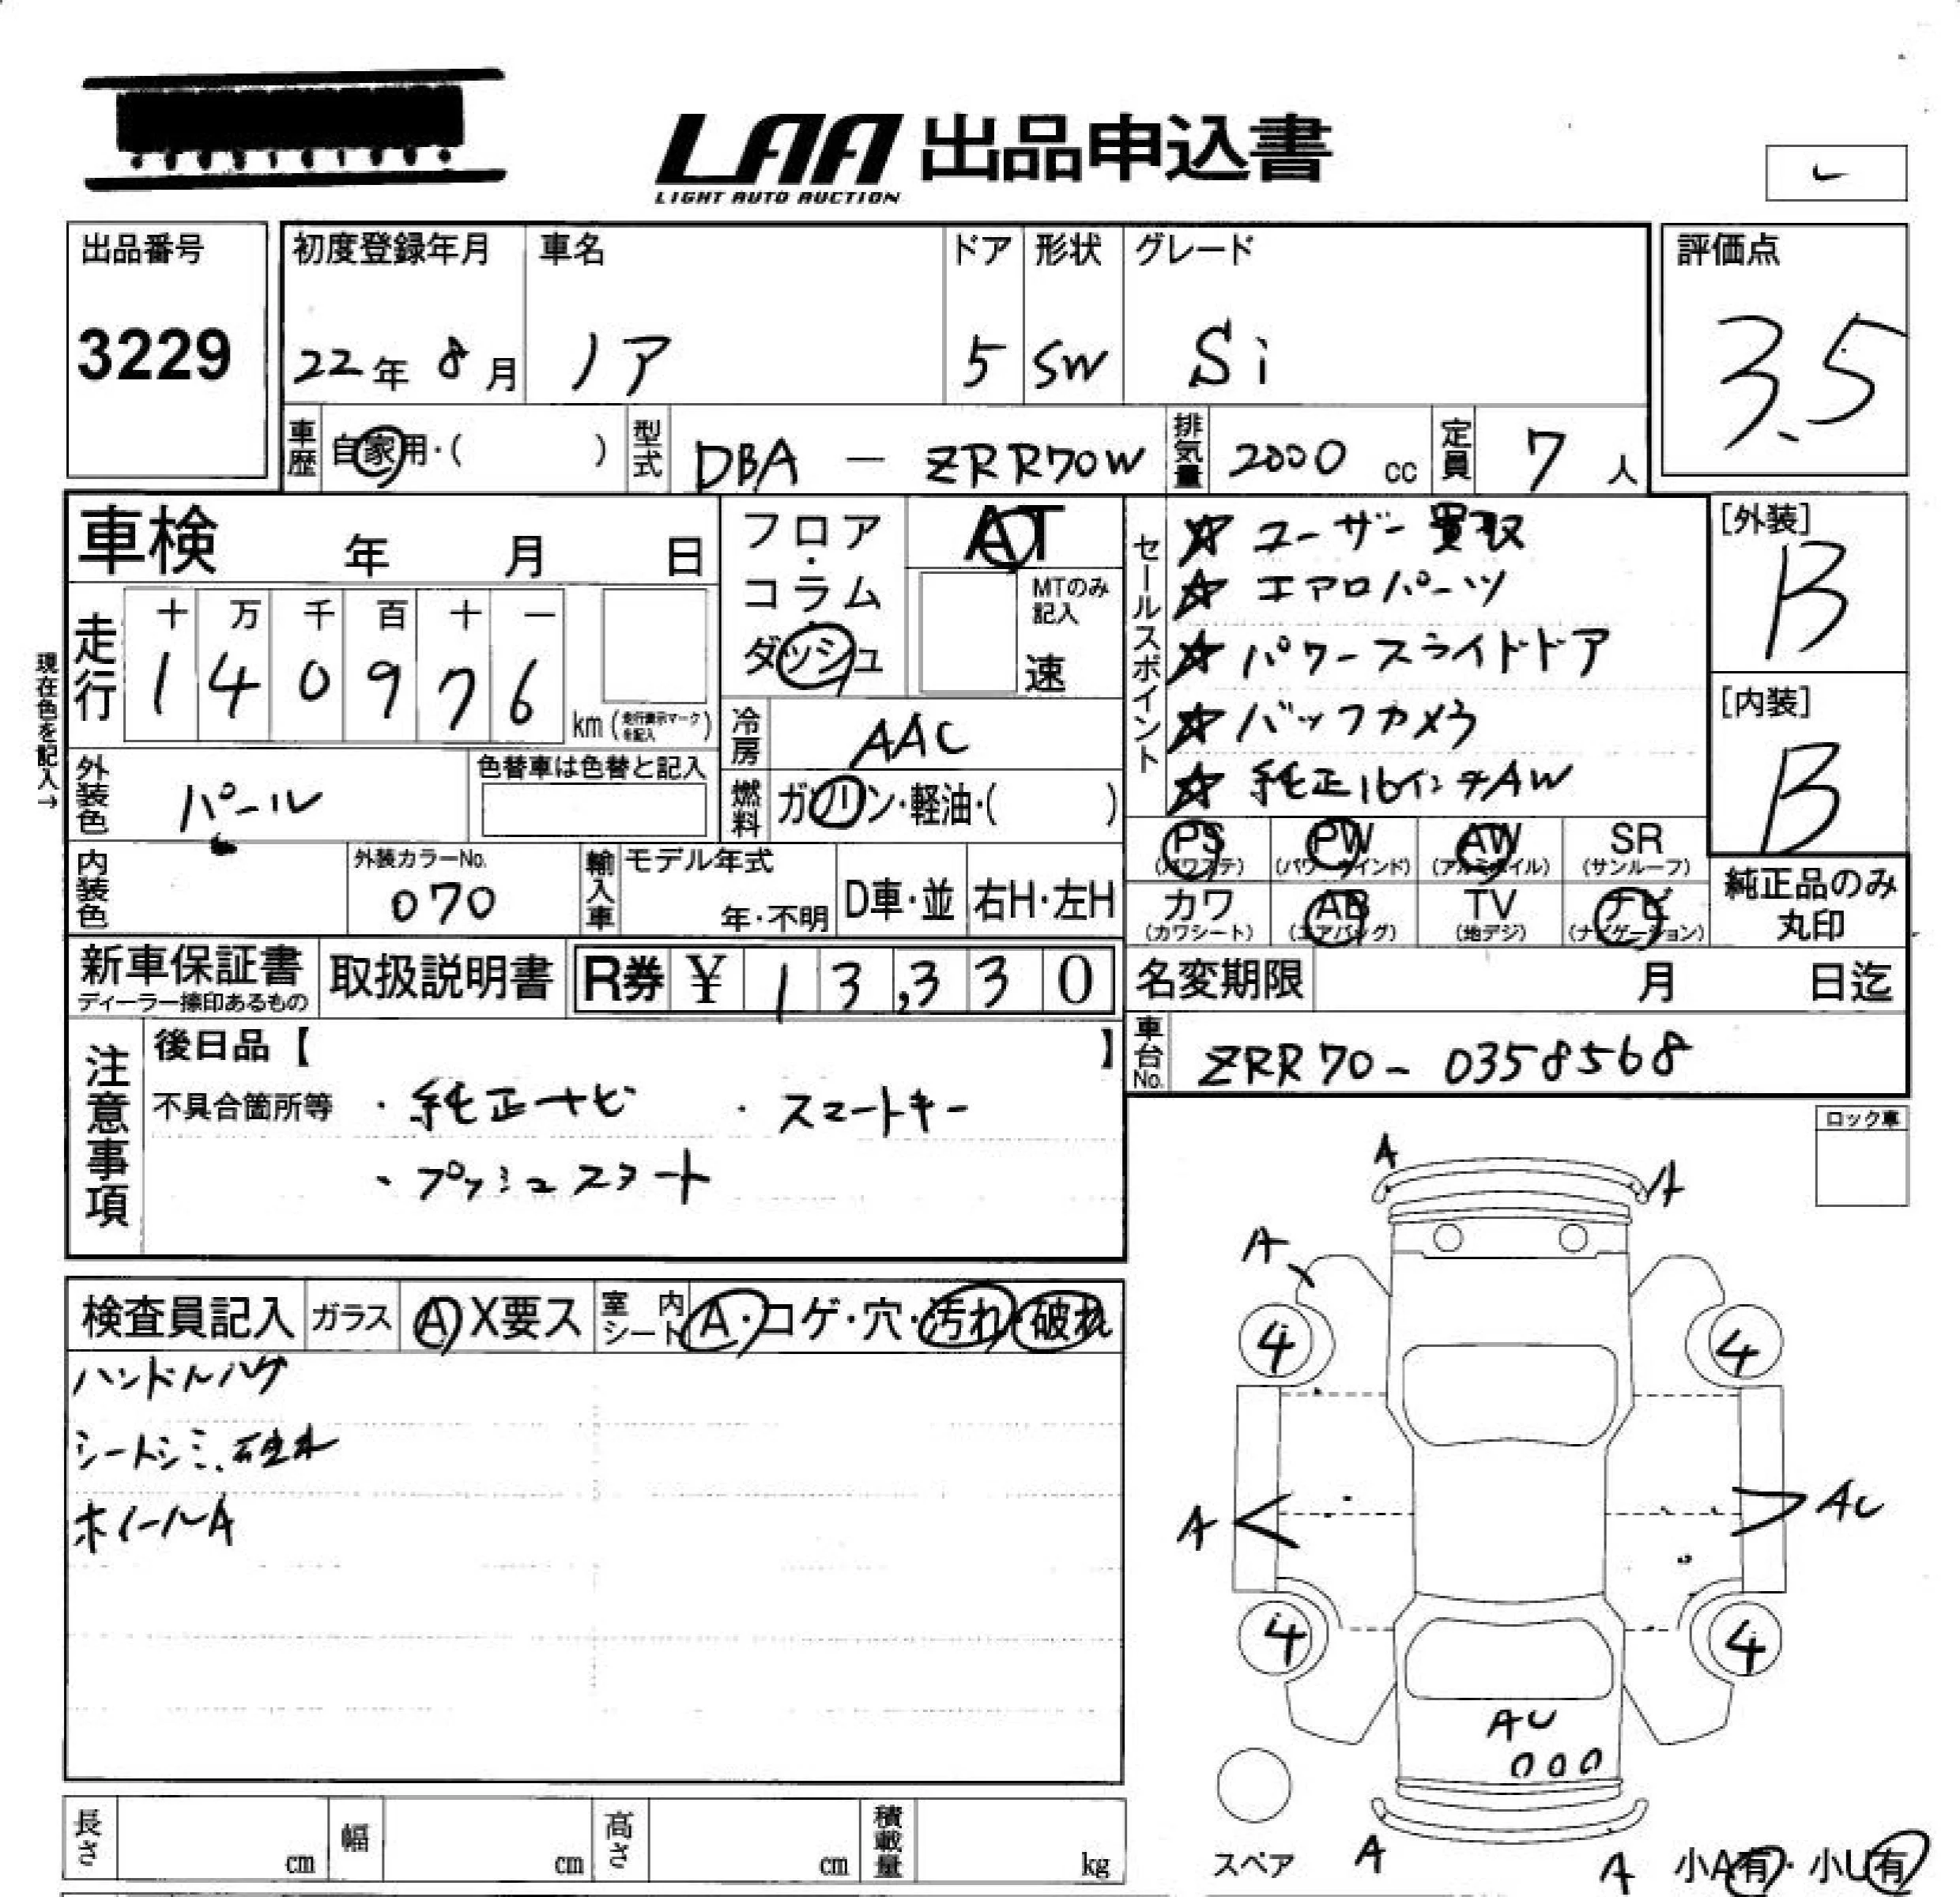 LAA 出品申込書
LIGHT AUTO AUCTION
出品番号
3229
初度登録年月
22年 8月
車名
ノア
ドア
5
形状
SW
グレード
Si
評価点
3.5
車歴 自家用・( )
型式 DBA - ZRR70W
排気量 2000 cc
定員 7 人
車検 年 月 日
走行
十 万 千 百 十 一
1 4 0 9 7 6
km (走行表示マークを記入)
現在色を記入→
フロア・コラム・ダッシュ
AT
MTのみ記入
速
冷房 AAC
燃料 ガソリン・軽油・( )
セールスポイント
☆ ユーザー買取
☆ エアロパーツ
☆ パワースライドドア
☆ バックカメラ
☆ 純正16インチAW
[外装]
B
[内装]
B
外装色 パール
色替車は色替と記入
内装色
外装カラーNo.
070
輸入車
モデル年式
年・不明
D車・並
右H・左H
PS (パワステ)
PW (パワーウインド)
AW (アルミホイル)
SR (サンルーフ)
カワ (カワシート)
AB (エアバッグ)
TV (地デジ)
ナビ (ナビゲーション)
純正品のみ
丸印
新車保証書
ディーラー捺印あるもの
取扱説明書
R券 ¥ 13,330
名変期限 月 日迄
車台No. ZRR70-0358568
注意事項
後日品【 】
不具合箇所等 ・純正ナビ ・スマートキー
・プッシュスタート
ロック車
検査員記入
ガラス A X要ス
室内シート A・コゲ・穴・汚れ・破れ
ハンドルハゲ
シートシミ、破れ
ホイールA
A
A
A
4
4
A
AU
4
4
AU
000
スペア
A
A
小A有・小U有
長さ cm
幅 cm
高さ cm
積載量 kg